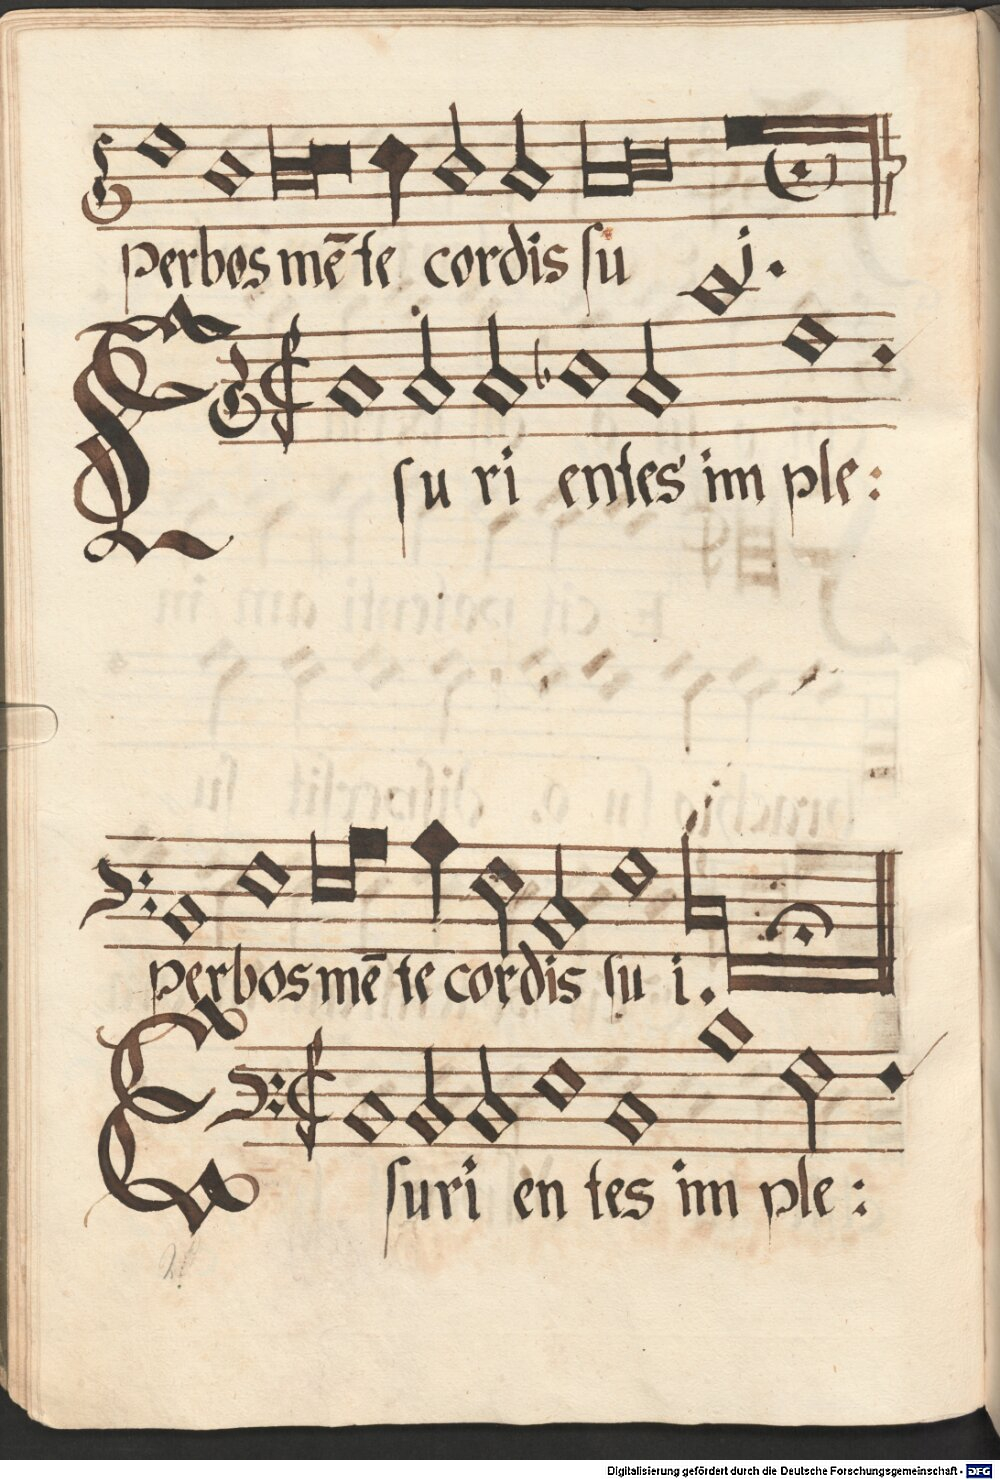 perbos mē te cordis su i.
E su ri entes im ple:
perbos mē te cordis su i.
E suri en tes im ple:
Digitalisierung gefördert durch die Deutsche Forschungsgemeinschaft - DFG